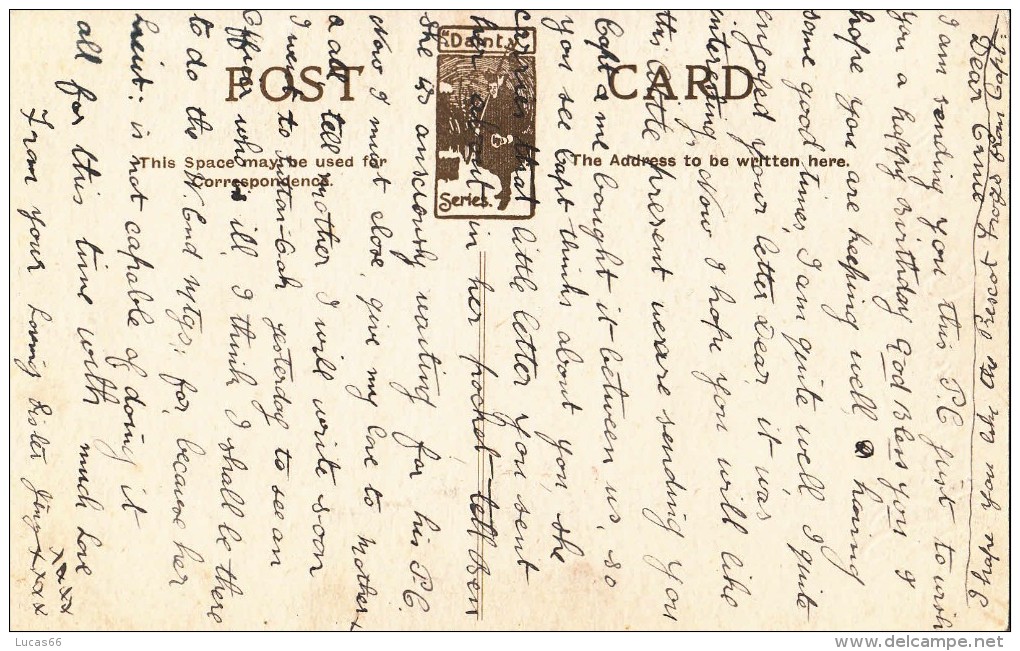 Dear Ennie
I am sending you this P.C. just to wish
you a happy Birthday God Bless you I
hope you are keeping well, & having
some good times, I am quite well I quite
enjoyed your letter dear, it was
interesting, Now I hope you will like
this little present we are sending you
Capt & me bought it between us, so
you see Capt thinks about you, she
carries that little letter you sent
her about in her pocket till ben
She is anxiously waiting for his P.C.
Now I must close, give my love to Mother &
a all tell Mother I will write soon
I went to yesterday to see an
Officer who is ill, I think I shall be there
to do the W. End Mtgs, for, because her
Lieut: is not capable of doing it
all for this time with much love
From your Loving Sister xxxx
xxxx
POST CARD
"Dainty"
Series.
This Space may be used for
Correspondence.
The Address to be written here.
Lucas66
www.delcampe.net